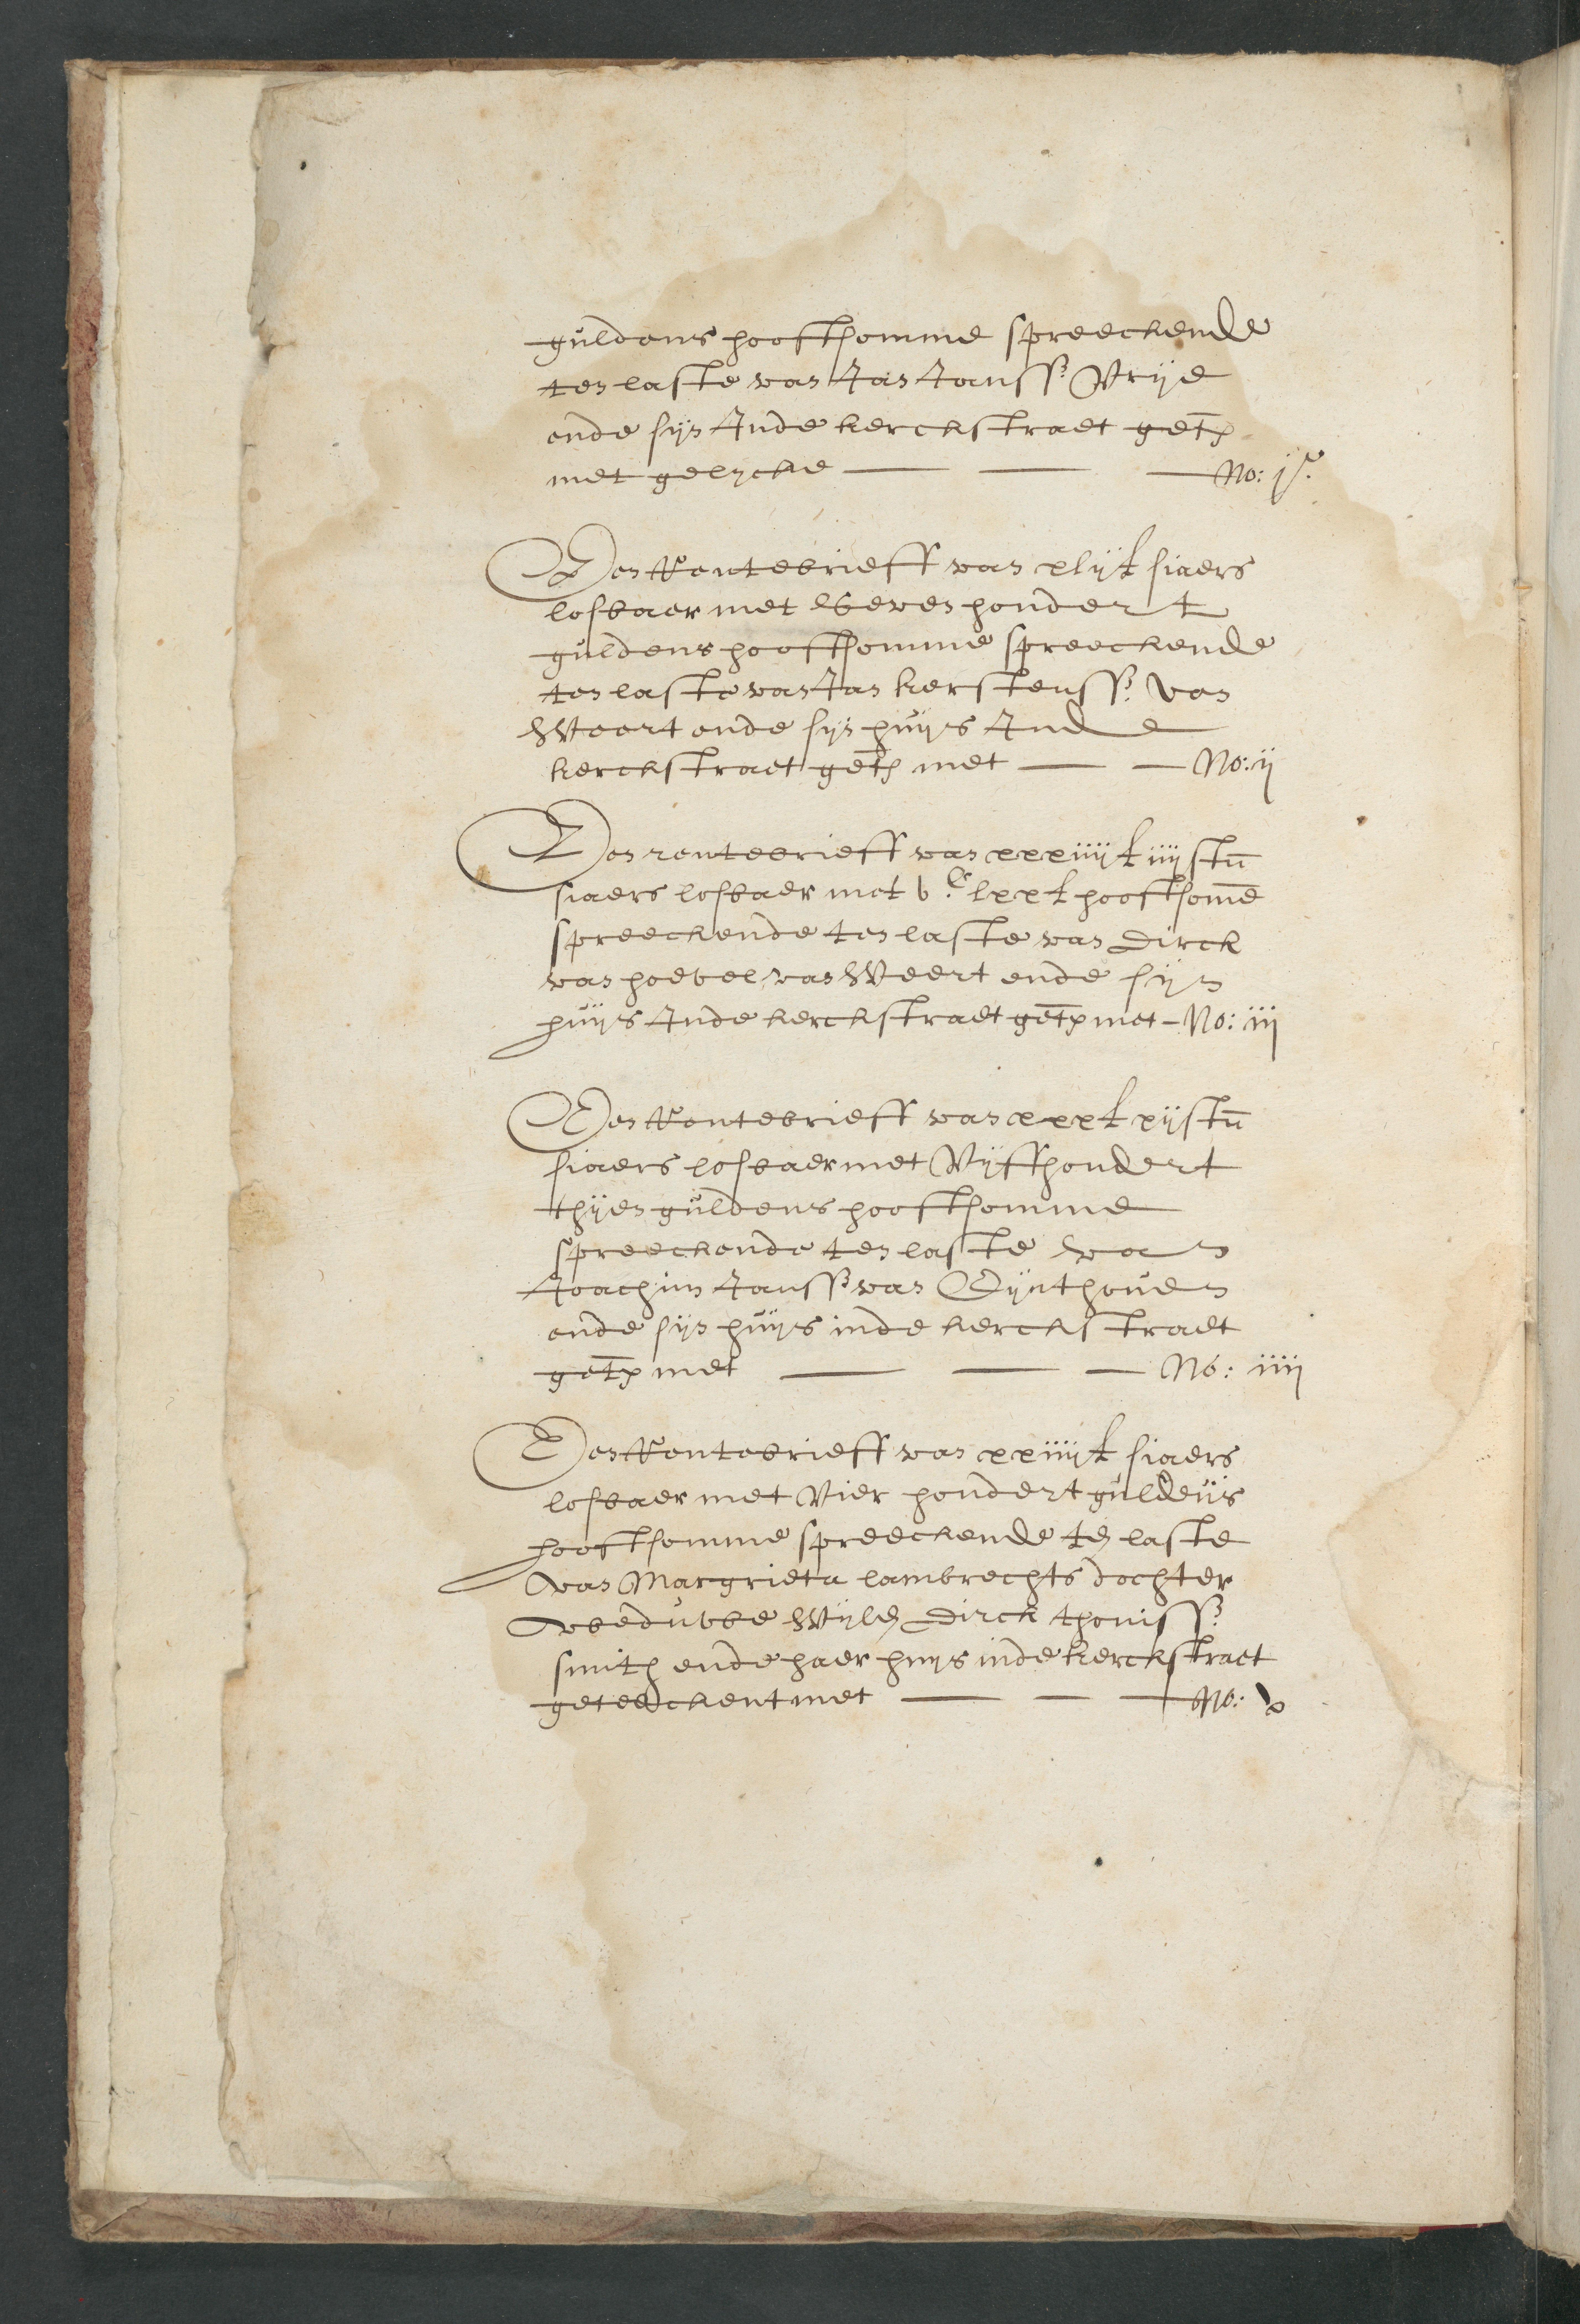 guldens hooftsomme spreeckende
ten laste van Jan Janss: Vrije
ende sijn Inde kerckstraet get̄
met gelycke — — — No: j.
Een Rentebrieff van xlij ₤ siaers
losbaer met Seven hondert
guldens hooftsomme spreeckende
ten laste van Jan kerstenss: van
Weert ende sijn huijs Inde
kerckstraet get̄ met — — No: ij
Een rentebrieff van xxxiiij ₤ iiij stū
siaers losbaer met v.C lxx ₤ hooftsom̄e
spreeckende ten laste van Dirck
van hoevel van Weert ende sijn
huijs Inde kerckstraet get̄ met – No: iij
Een Rentebrieff van xxx ₤ xij stū
siaers losbaer met Vijffhondert
thijen guldens hooftsomme
spreeckende ten laste van
Joachim Janss: van Eijnthouen
ende sijn huijs inde kerckstraet
get̄ met — — — No: iiij
Een Rentebrieff van xxiiij ₤ siaers
losbaer met Vier hondert guldens
hooftsomme spreeckende ten laste
van Margrieta lambrechts dochter
weduwe Wijlen Dirck thoniss:
smith ende haer huijs inde kerckstraet
geteeckent met — — — No: v